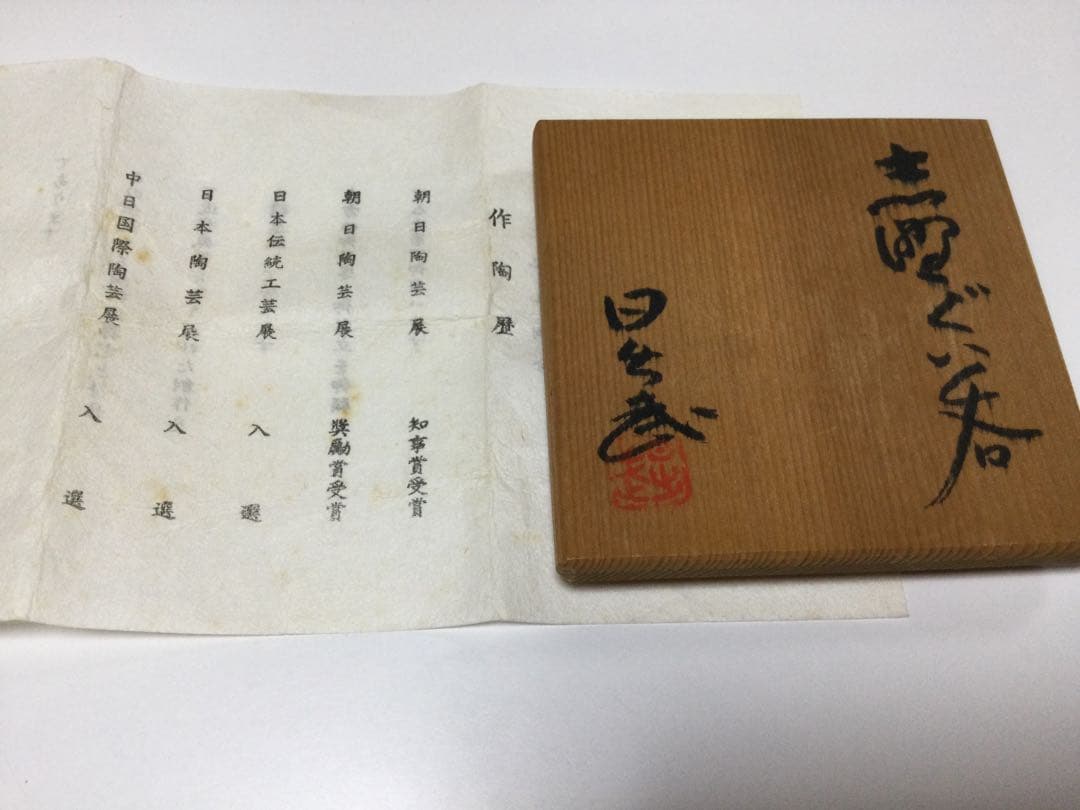 志野ぐい呑
作陶歴
朝日陶芸展 知事賞受賞
朝日陶芸展 奨励賞受賞
日本伝統工芸展 入選
日本陶芸展 入選
中日国際陶芸展 入選